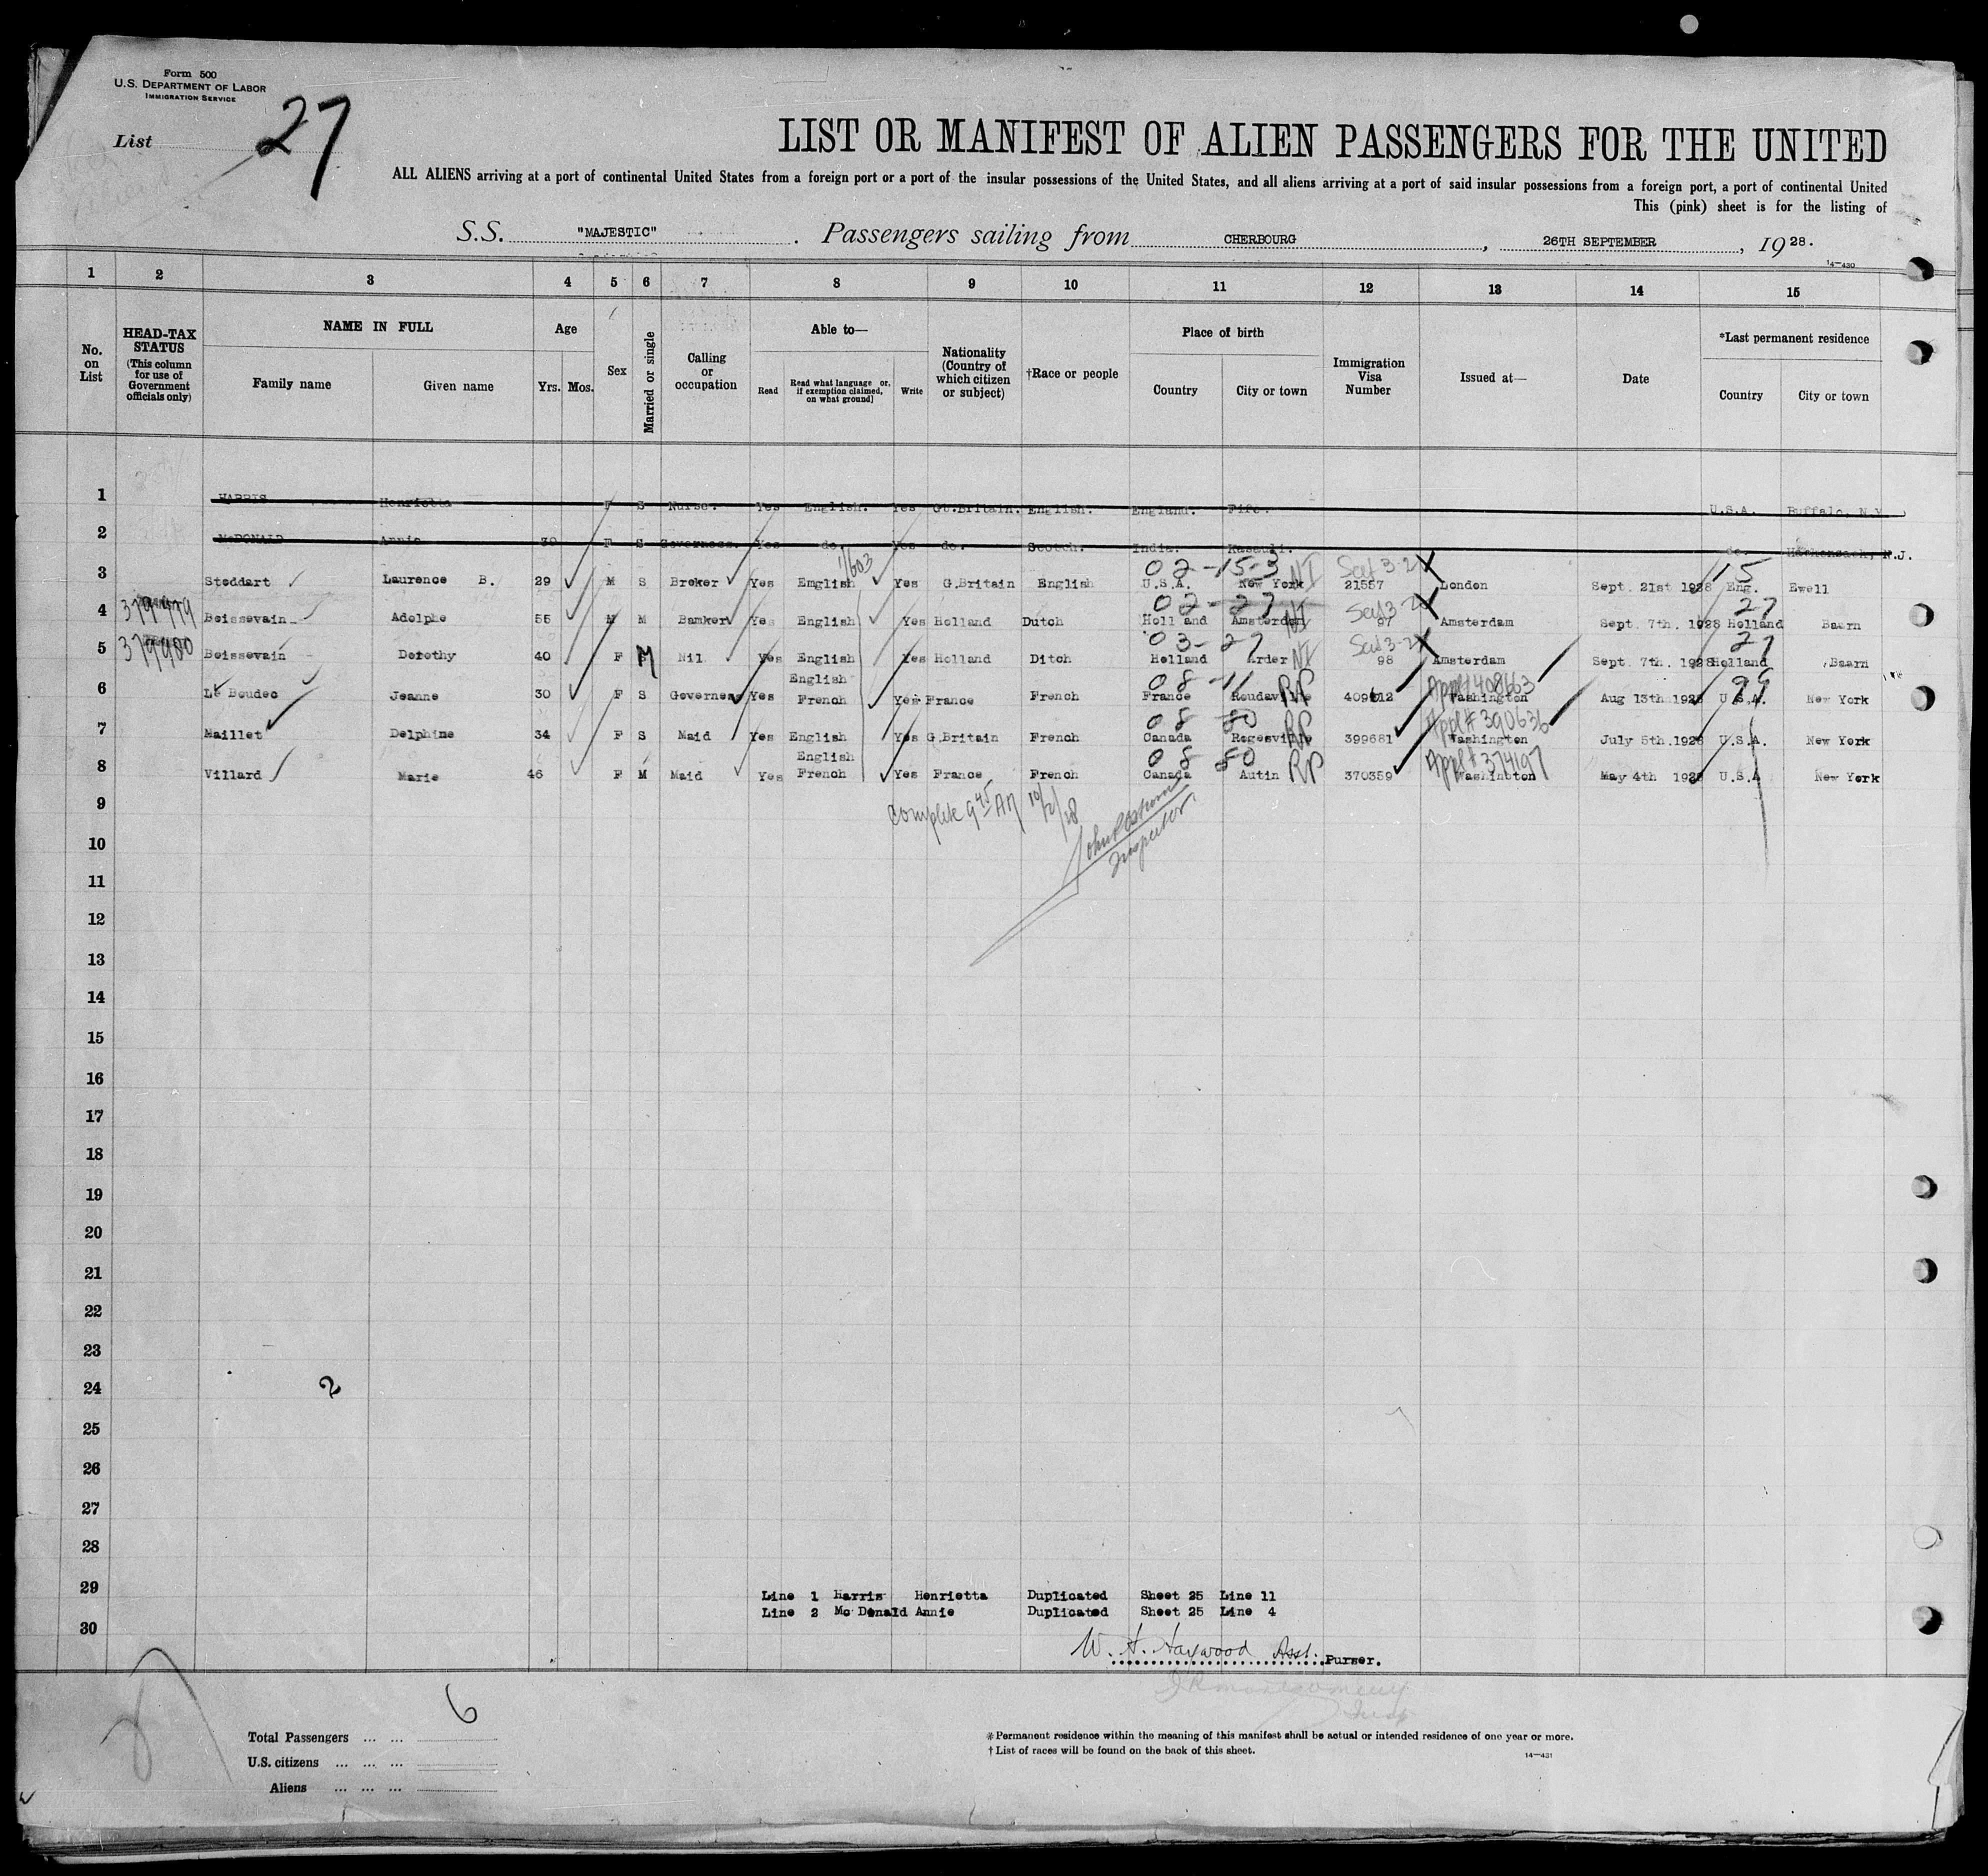 Form 500
U.S. DEPARTMENT OF LABOR
IMMIGRATION SERVICE
List 27
LIST OR MANIFEST OF ALIEN PASSENGERS FOR THE UNITED
ALL ALIENS arriving at a port of continental United States from a foreign port or a port of the insular possessions of the United States, and all aliens arriving at a port of said insular possessions from a foreign port, a port of continental United
This (pink) sheet is for the listing of
S.S. "MAJESTIC". Passengers sailing from CHERBOURG, 26TH SEPTEMBER, 1928.
14—430
1 2 3 4 5 6 7 8 9 10 11 12 13 14 15
No. on List
HEAD-TAX STATUS (This column for use of Government officials only)
NAME IN FULL
Family name Given name
Age
Yrs. Mos.
Sex
Married or single
Calling or occupation
Able to—
Read Read what language or, if exemption claimed, on what ground) Write
Nationality (Country of which citizen or subject)
†Race or people
Place of birth
Country City or town
Immigration Visa Number
Issued at—
Date
*Last permanent residence
Country City or town
1 HARRIS Henrietta F S Nurse. Yes English. Yes Gt.Britain. English. England. Fife. U.S.A. Buffalo, N.Y.
2 McDONALD Annie 30 F S Governess. Yes do. Yes do. Scotch. India. Kasauli. do. Hackensack, N.J.
1/603
02-15-3 NI 15
3 Stoddart Laurence B. 29 M S Broker Yes Emglish Yes G.Britain English U.S.A. New York 21557 London Sept. 21st 1928 Eng. Ewell
379979 02-27 NI 27
4 Boissevain Adolphe 55 M M Bamker Yes English Yes Holland Dutch Holl and Amsterdam 97 Amsterdam Sept. 7th. 1928 Holland Baarn
379980 03-27 NI 27
5 Boissevain Dorothy 40 F M Nil Yes English Yes Holland Ditch Holland Arder 98 Amsterdam Sept. 7th. 1928 Holland Baarn
English 08-11 RP Appl# 408663 99
6 Le Boudec Jeanne 30 F S Governess Yes French Yes France French France 409612 Washington Aug 13th.1928 U.S.A. New York
08 80 RP Appl# 390636
7 Maillet Delphine 34 F S Maid Yes English Yes G.Britain French Canada Rogesville 399681 Washington July 5th.1928 U.S.A. New York
English 08 80 RP Appl# 374197
8 Villard Marie 46 F M Maid Yes French Yes France French Canada Autin 370359 Washinbton May 4th 1928 U.S.A New York
9 Complete 9 45 AM 10/2/28
10 Inspector
11
12
13
14
15
16
17
18
19
20
21
22
23
24 2
25
26
27
28
29 Line 1 Harris Henrietta Duplicated Sheet 25 Line 11
Line 2 Mc Donald Annie Duplicated Sheet 25 Line 4
30
W. H. Haywood Asst. Purser.
Total Passengers ... ... 6
U.S. citizens ... ... ...
Aliens ... ... ...
*Permanent residence within the meaning of this manifest shall be actual or intended residence of one year or more.
†List of races will be found on the back of this sheet.
14—431